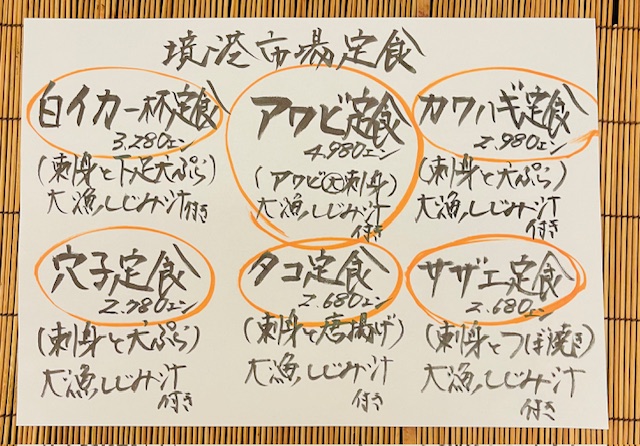 境港市場定食
白イカ一杯定食
3,280エン
(刺身と下足天ぷら)
大漁しじみ汁付き
アワビ定食
4,980エン
(アワビ大刺身)
大漁しじみ汁
付き
カワハギ定食
2,980エン
(刺身と天ぷら)
大漁しじみ汁
付き
穴子定食
2,780エン
(刺身と天ぷら)
大漁しじみ汁
付き
タコ定食
2,680エン
(刺身と唐揚げ)
大漁しじみ汁
付き
サザエ定食
2,680エン
(刺身とつぼ焼き)
大漁しじみ汁
付き